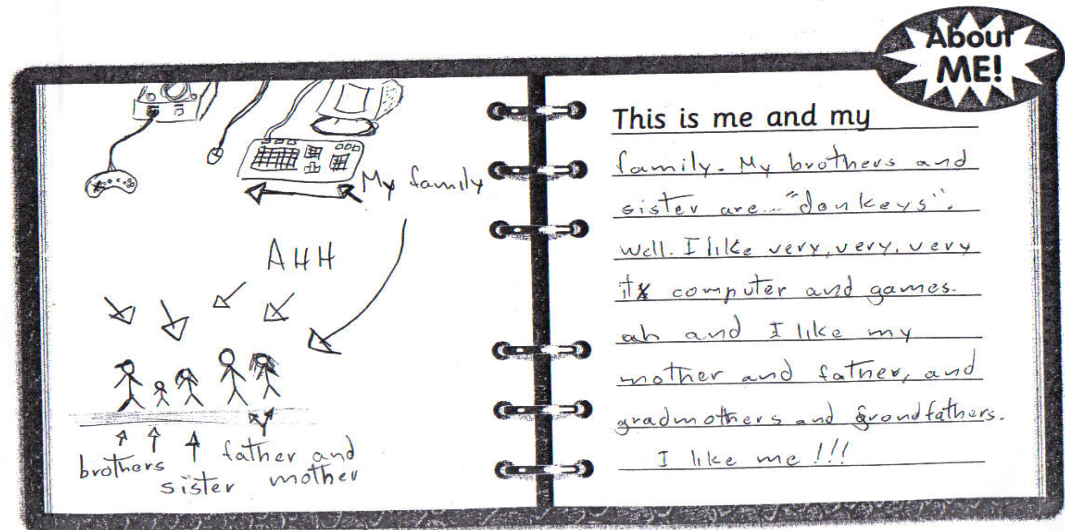 About
ME!
My family
AHH
brothers
sister
father and
mother
This is me and my
family. My brothers and
sister are... "donkeys".
Well. I like very, very, very
it computer and games.
ah and I like my
mother and father, and
gradmothers and grondfathers.
I like me!!!